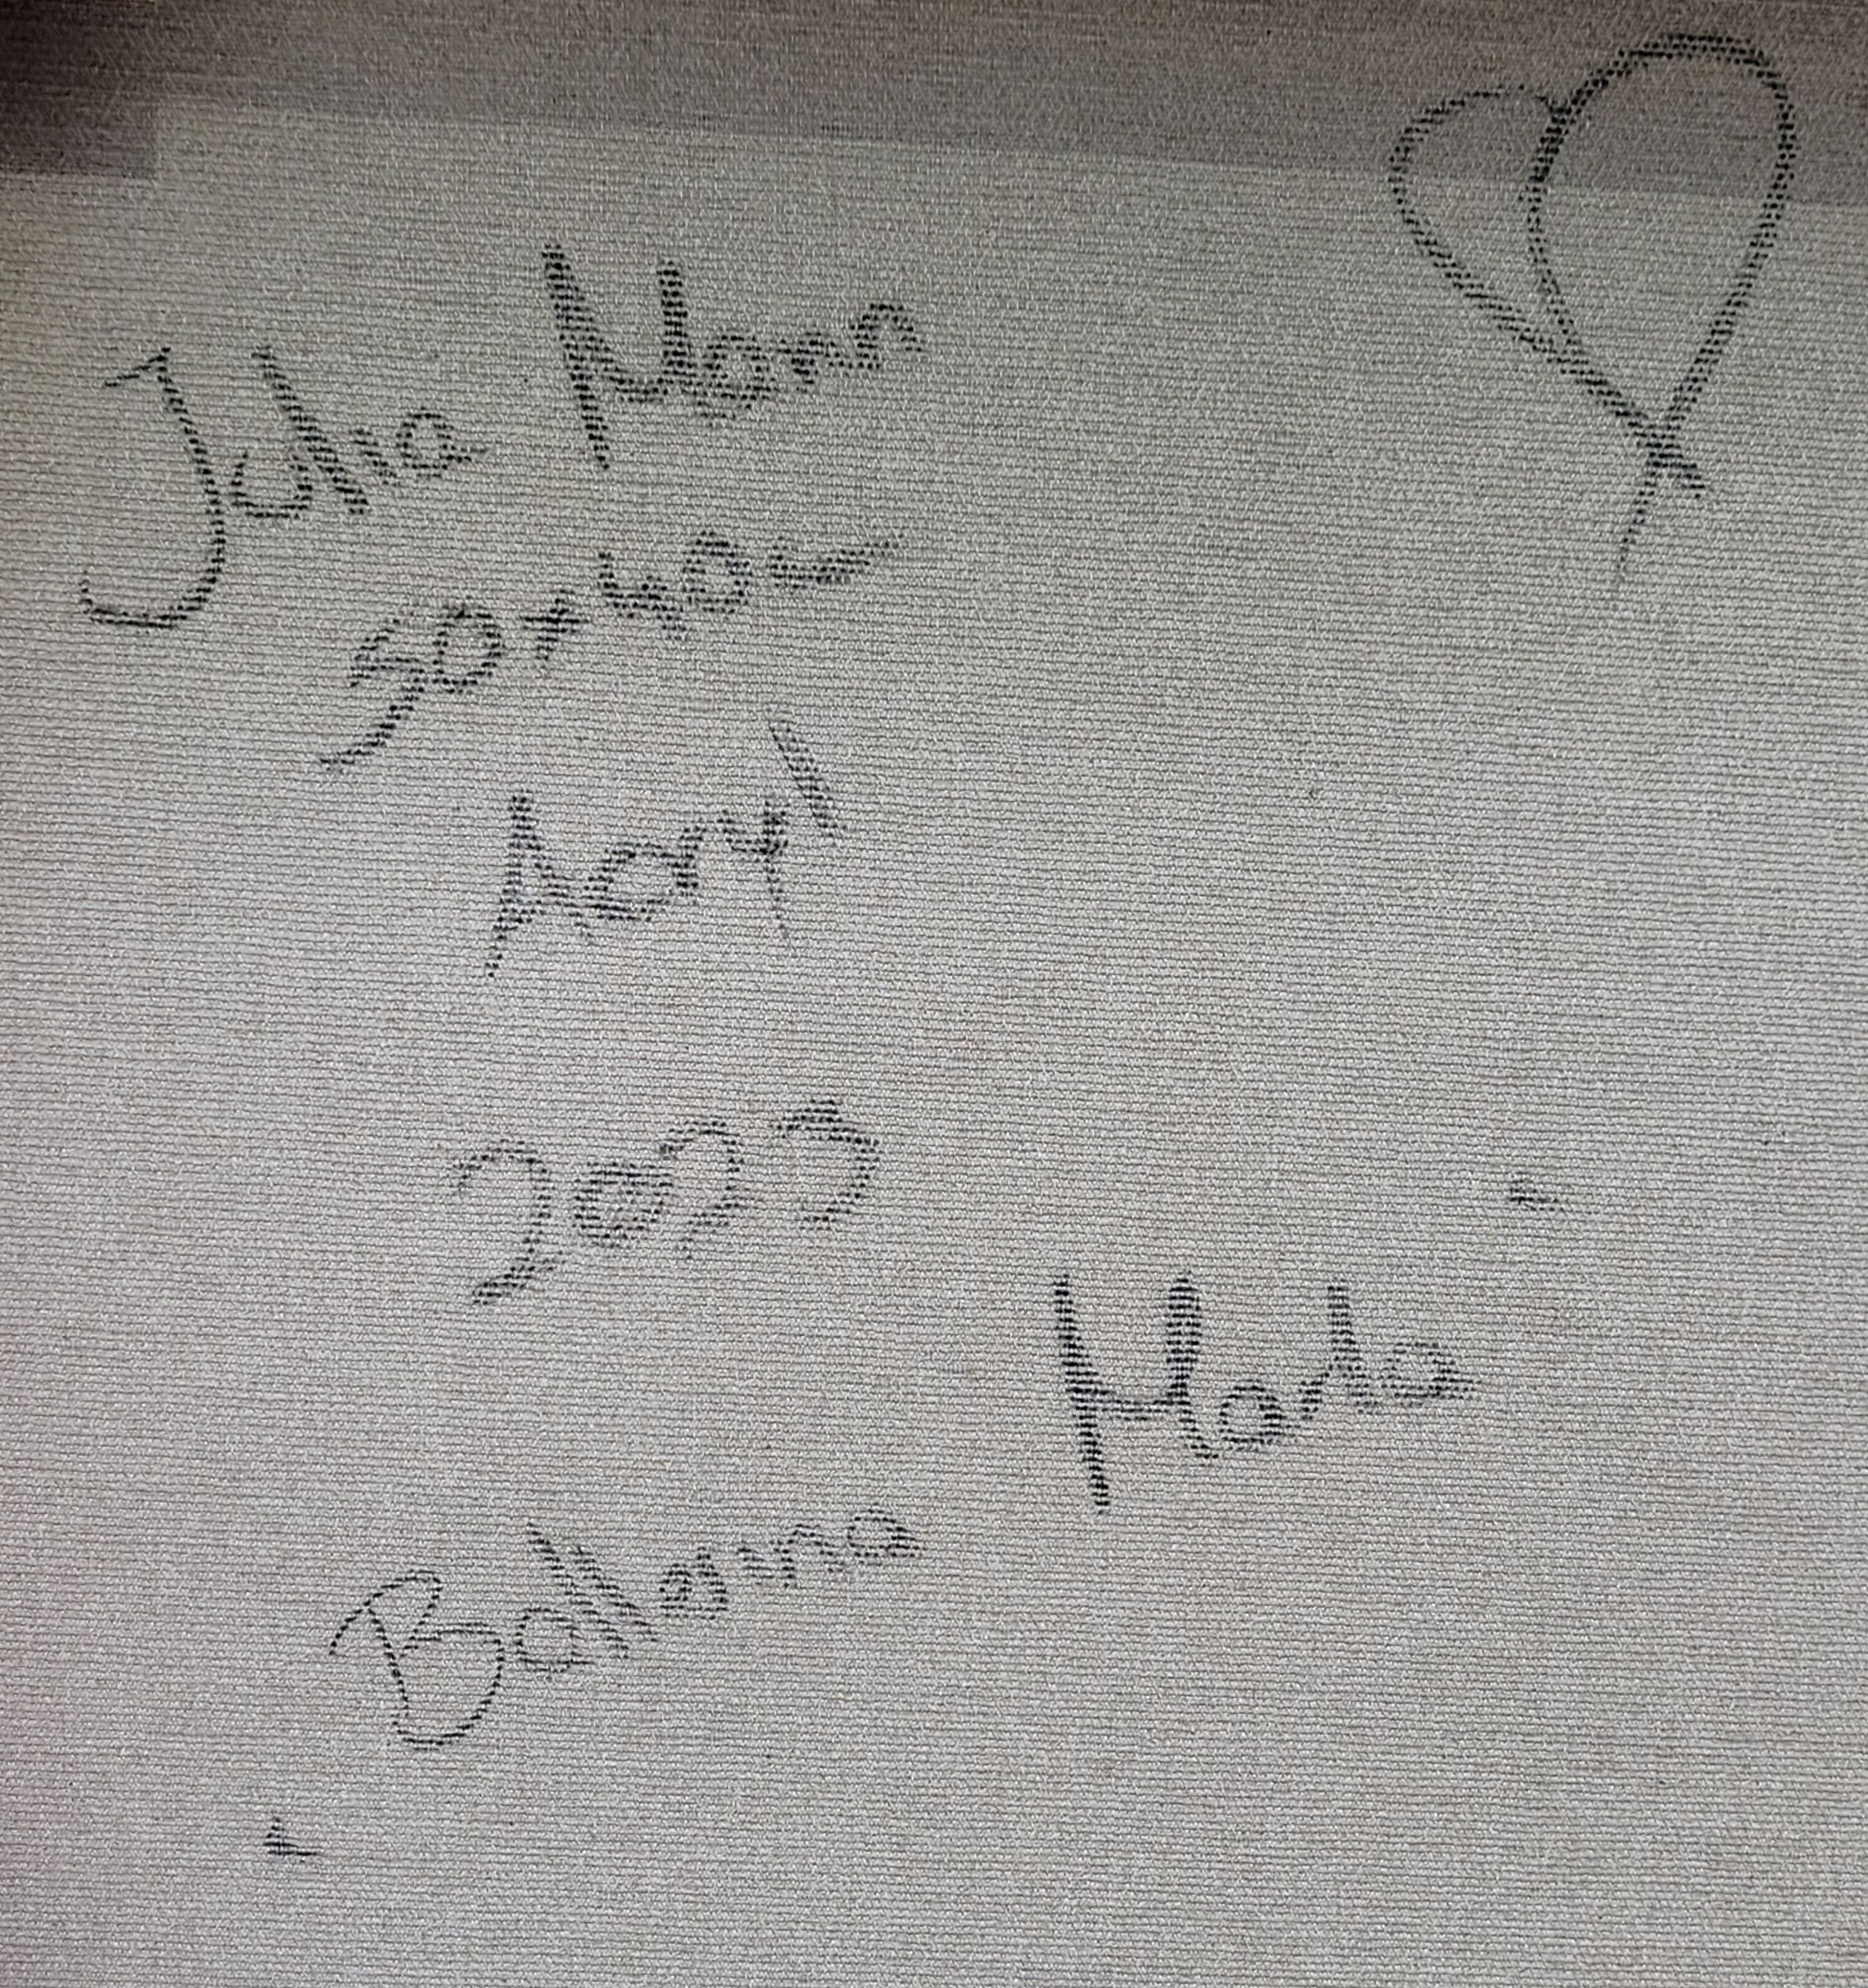 Julia Mann
50x40cm
Acryl
2022
Ballerina Mala